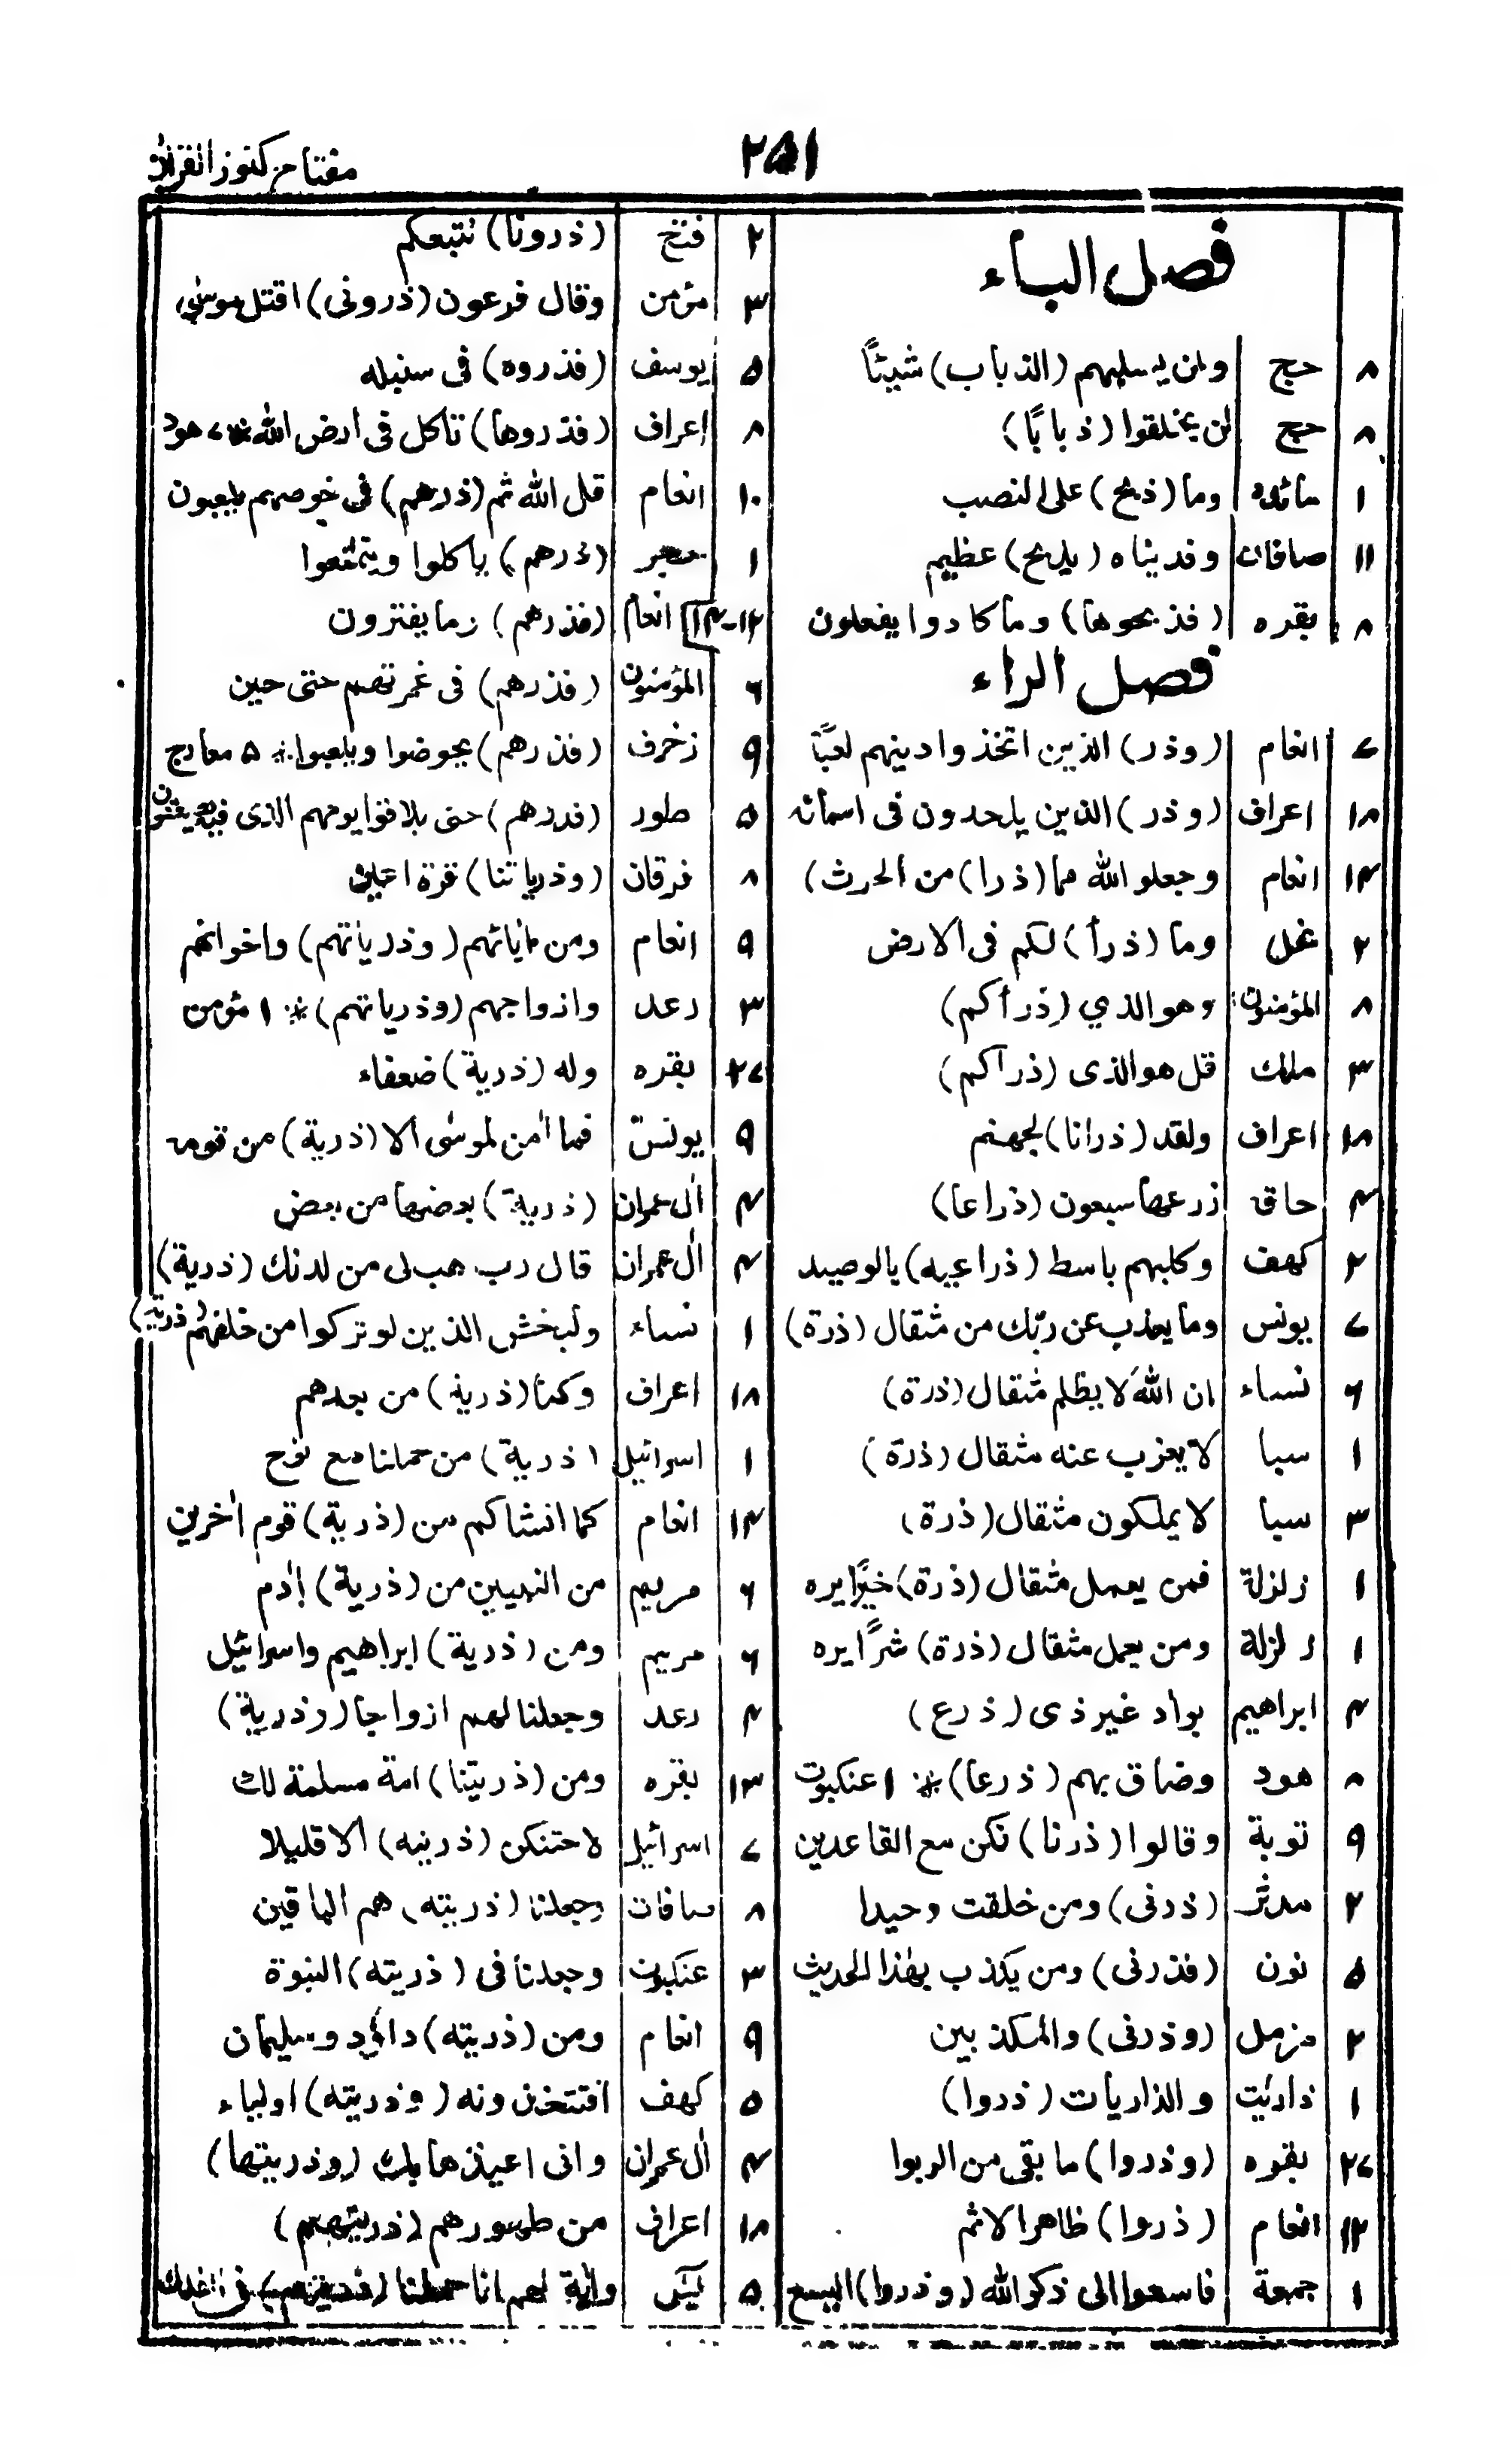 ۲۵۱
مفتاح کنوز القرآن
فصل الباء
۸ حج وان یسلبهم (الذباب) شیئًا
۸ حج لن یخلقوا (ذبابًا)
۱ مائده وما (ذبح) علی النصب
۱۱ صافات وفدیناه (بذبح) عظیم
۸ بقره (فذبحوها) وما کادوا یفعلون
فصل الراء
۷ انعام (وذر) الذین اتخذوا دینهم لعبًا
۱۸ اعراف (وذر) الذین یلحدون فی اسمائه
۱۴ انعام وجعلو الله مما (ذرا) من الحرث)
۲ نحل وما (ذرأ) لکم فی الارض
۸ المؤمنون وهو الذي (ذرأکم)
۳ ملک قل هو الذی (ذرآکم)
۱۸ اعراف ولقد (ذرانا) لجهنم
۴ حاقه زرعها سبعون (ذراعا)
۲ کهف وکلبهم باسط (ذراعیه) بالوصید
۷ یونس وما یعذب عن ربّک من مثقال (ذرة)
۶ نساء ان الله لا یظلم مثقال (ذرة)
۱ سبا لا یعزب عنه مثقال (ذرة)
۳ سبا لا یملکون مثقال (ذرة)
۱ زلزلة فمن یعمل مثقال (ذرة) خیرًا یره
۱ زلزلة ومن یعمل مثقال (ذرة) شرًا یره
۴ ابراهیم بواد غیر ذی (ذرع)
۸ هود وضاق بهم (ذرعا) * ۱ عنکبوت
۹ توبة وقالوا (ذرنا) نکن مع القاعدین
۲ مدثر (ذرنی) ومن خلقت وحیدا
۵ نون (فذرنی) ومن یکذب بهٰذا الحدیث
۲ مزمل (وذرنی) والمکذبین
۱ ذاریت والذاریات (ذروا)
۲۷ بقره (وذروا) ما بقی من الربوا
۱۲ انعام (ذروا) ظاهر الاثم
۱ جمعة فاسعوا الی ذکر الله (وذروا) البیع
۲ فتح (ذرونا) نتبعکم
۳ مؤمن وقال فرعون (ذرونی) اقتل موسٰی
۵ یوسف (فذروه) فی سنبله
۸ اعراف (فذروها) تاکل فی ارض الله * ۷ هود
۱۰ انعام قل الله ثم (ذرهم) فی خوصهم یلعبون
۱ حجر (ذرهم) یاکلوا ویتمتعوا
۱۲-۱۴ انعام (فذرهم) وما یفترون
۶ المؤمنون (فذرهم) فی غمرتهم حتی حین
۹ زخرف (فذرهم) یخوضوا ویلعبوا * ۵ معارج
۵ طور (فذرهم) حتی یلاقوا یومهم الذی فیه یصعقون
۸ فرقان (وذریاتنا) قرة اعین
۹ انعام ومن اٰبائهم (وذریاتهم) واخوانهم
۳ رعد وازواجهم (وذریاتهم) * ۱ مؤمن
۲۷ بقره وله (ذریة) ضعفاء
۹ یونس فما اٰمن لموسٰی الا (ذریة) من قومه
۴ اٰل عمران (ذریة) بعضها من بعض
۴ اٰل عمران قال رب هب لی من لدنک (ذریة)
۱ نساء ولیخش الذین لو ترکوا من خلفهم (ذریة)
۱۸ اعراف وکنا (ذریة) من بعدهم
۱ اسرائیل (ذریة) من حملنا مع نوح
۱۴ انعام کما انشاکم من (ذریة) قوم اٰخرین
۶ مریم من النبیین من (ذریة) اٰدم
۶ مریم ومن (ذریة) ابراهیم واسرائیل
۴ رعد وجعلنا لهم ازواجا (وذریة)
۱۳ بقره ومن (ذریتنا) امة مسلمة لک
۷ اسرائیل لاحتنکن (ذریته) الا قلیلا
۸ صافات وجعلنا (ذریته) هم الباقین
۳ عنکبوت وجعلنا فی (ذریته) النبوة
۹ انعام ومن (ذریته) داؤد وسلیمان
۵ کهف افتتخذونه (وذریته) اولیاء
۴ اٰل عمران وانی اعیذها بک (وذریتها)
۱۸ اعراف من ظهورهم (ذریتهم)
۵ یٰس واٰیة لهم انا حملنا (ذریتهم) فی الفلک